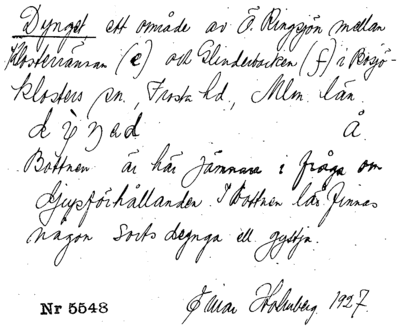 Dynget ett område av Ö. Ringsjön mellan
Klosterrännan (e) och Glinderbacken (f) i Bosjö-
klosters sn., Frosta hd., Mlm. län.
Å
Bottnen är här jämnare i fråga om
djupförhållanden. I Bottnen lär finnas
någon sorts dynga ell. gyttja.
Einar Holmberg 1927.
Nr 5548